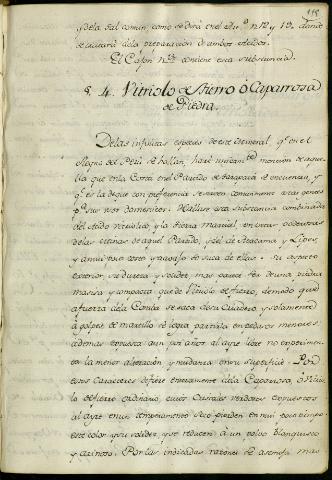 115
y dela Sal comun como se dirá en el §. n.º 12 y 13. donde
se tratará dela preparacion de ambos efectos.
El Cajon n.º contiene esta substancia.
§. 4. Vitriolo de Fierro ó Caparrosa
de Piedra.
Delas infinitas especies de este Mineral, q.e en el
Reyno del Perú se hallan, haré unicam.te mencion de aque-
lla que en la Costa en el Partido de Tarapacá se encuentra, y
q.e es la de que con preferencia se sirven comunmente aquellas gentes
p.a sus usos domesticos. Hallase esta substancia combinada
del Acido vitriolico, y la tierra Marcial, en varias
delas de aquel Partido, y del de Atacama y Lipes,
y aun costo y trabajo se saca de ellas. Su aspecto
exterior, su dureza y solidez, mas parece ser de una piedra
maciza y compacta que de Vitriolo de fierro, de modo que
á fuerza dela se saca de su Criadero, y solamente
á golpes de martillo se logra partirla en pedazos menores
ademas expuesta aun por años al ayre libre no experimen-
ta la menor alteracion y mudanza en su superficie. Por
estos Caracteres difiere enteramente dela Caparrosa, ó Vitrio-
lo de fierro ordinario, cuios Cristales verdosos expuestos
al ayre en un temperamento seco pierden en mui poco tiempo
este color y su solidez, y se reducen á un polvo blanquisco
y arinoso. Por las indicadas razones se asemeja mas